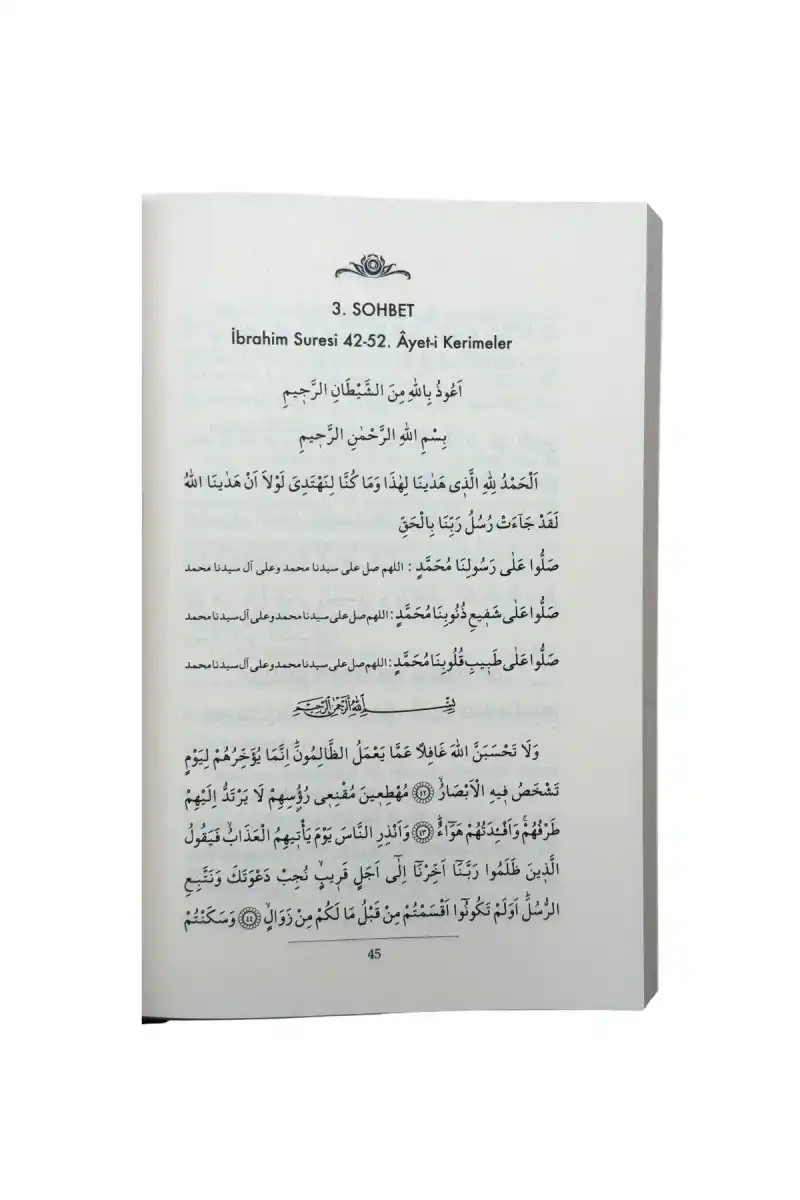 3. SOHBET
İbrahim Suresi 42-52. Âyet-i Kerimeler
اَعُوذُ بِاللهِ مِنَ الشَّيْطَانِ الرَّجٖيمِ
بِسْمِ اللهِ الرَّحْمٰنِ الرَّحٖيمِ
اَلْحَمْدُ لِلّٰهِ الَّذٖى هَدٰينَا لِهٰذَا وَمَا كُنَّا لِنَهْتَدِىَ لَوْلَا اَنْ هَدٰينَا اللهُ
لَقَدْ جَآءَتْ رُسُلُ رَبِّنَا بِالْحَقِّ
صَلُّوا عَلٰى رَسُولِنَا مُحَمَّدٍ : اللهم صل على سيدنا محمد وعلى آل سيدنا محمد
صَلُّوا عَلٰى شَفٖيعِ ذُنُوبِنَا مُحَمَّدٍ : اللهم صل على سيدنا محمد وعلى آل سيدنا محمد
صَلُّوا عَلٰى طَبٖيبِ قُلُوبِنَا مُحَمَّدٍ : اللهم صل على سيدنا محمد وعلى آل سيدنا محمد
بِسْمِ اللهِ الرَّحْمٰنِ الرَّحٖيمِ
وَلَا تَحْسَبَنَّ اللهَ غَافِلًا عَمَّا يَعْمَلُ الظَّالِمُونَؕ اِنَّمَا يُؤَخِّرُهُمْ لِيَوْمٍ
تَشْخَصُ فٖيهِ الْاَبْصَارُۙ ﴿٤٢﴾ مُهْطِعٖينَ مُقْنِعٖى رُؤُسِهِمْ لَا يَرْتَدُّ اِلَيْهِمْ
طَرْفُهُمْۚ وَاَفْـِٔدَتُهُمْ هَوَٓاءٌؕ ﴿٤٣﴾ وَاَنْذِرِ النَّاسَ يَوْمَ يَأْتٖيهِمُ الْعَذَابُۙ فَيَقُولُ
الَّذٖينَ ظَلَمُوا رَبَّنَٓا اَخِّرْنَٓا اِلٰٓى اَجَلٍ قَرٖيبٍۙ نُجِبْ دَعْوَتَكَ وَنَتَّبِعِ
الرُّسُلَؕ اَوَلَمْ تَكُونُٓوا اَقْسَمْتُمْ مِنْ قَبْلُ مَا لَكُمْ مِنْ زَوَالٍۙ ﴿٤٤﴾ وَسَكَنْتُمْ
45